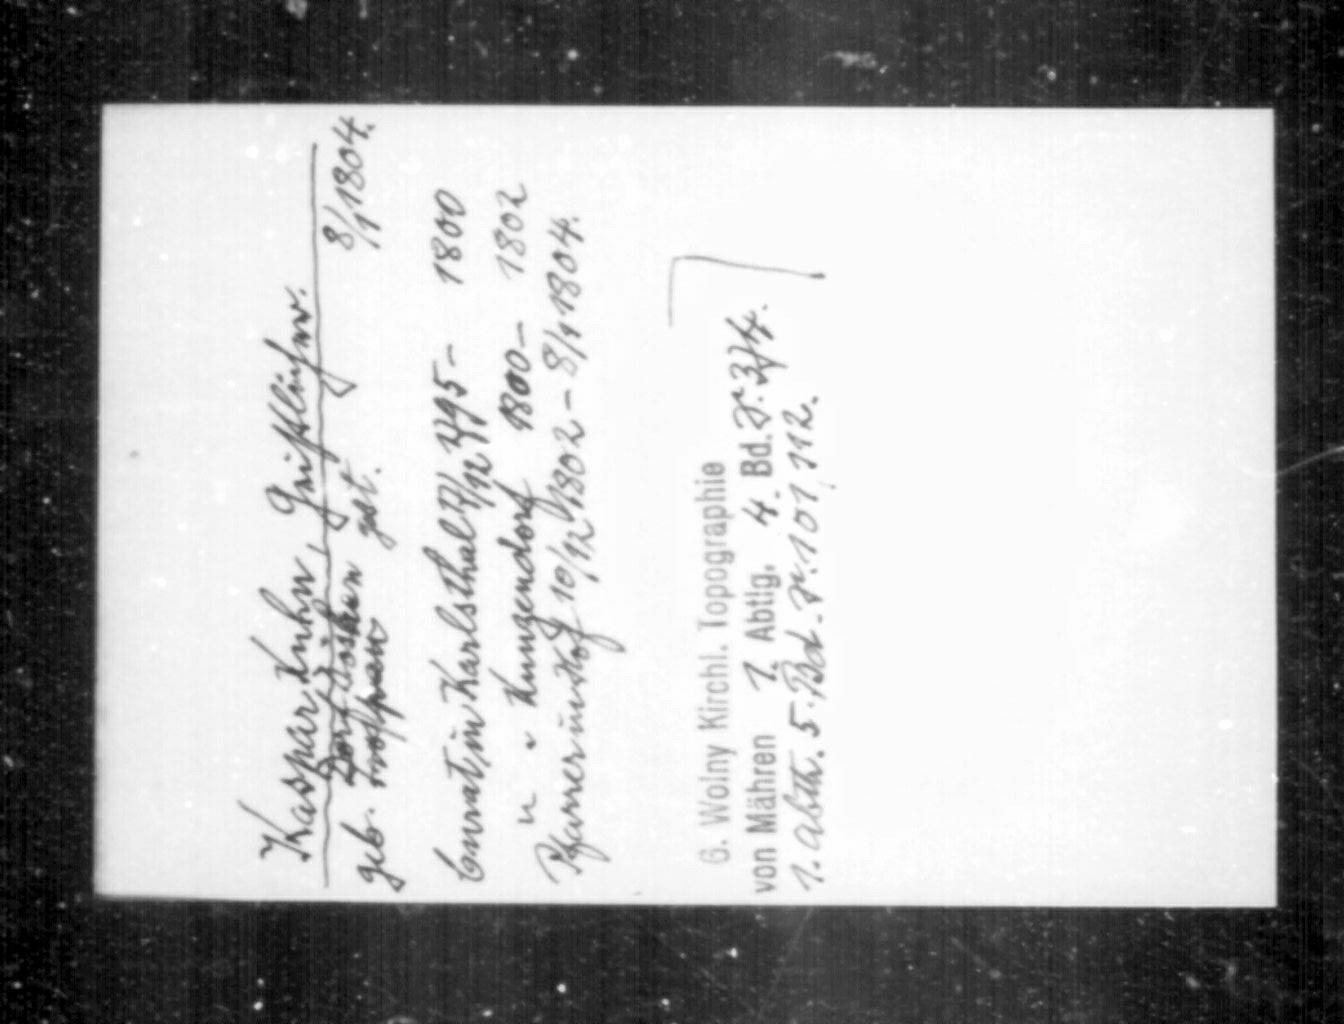 Kaspar Kuhn, Geistlicher.
geb. Troppau gest. 8/1 1804.
Curat in Karlsthal 7/12 1795 – 1800
" " Kunzendorf 1800 – 1802
Pfarrer in Hof 10/12 1802 – 8/1 1804.
G. Wolny Kirchl. Topographie
von Mähren 1. Abtlg. 4. Bd. S. 374.
1. Abth. 5. Bd. S. 101, 112.